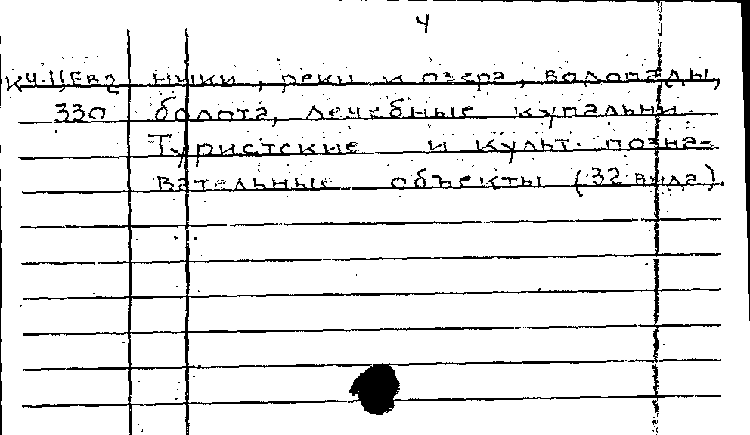 4
ники, реки и озера, водопады,
330 болота, лечебные купальни.
Туристские и культ. позна-
вательные объекты (32 вида).